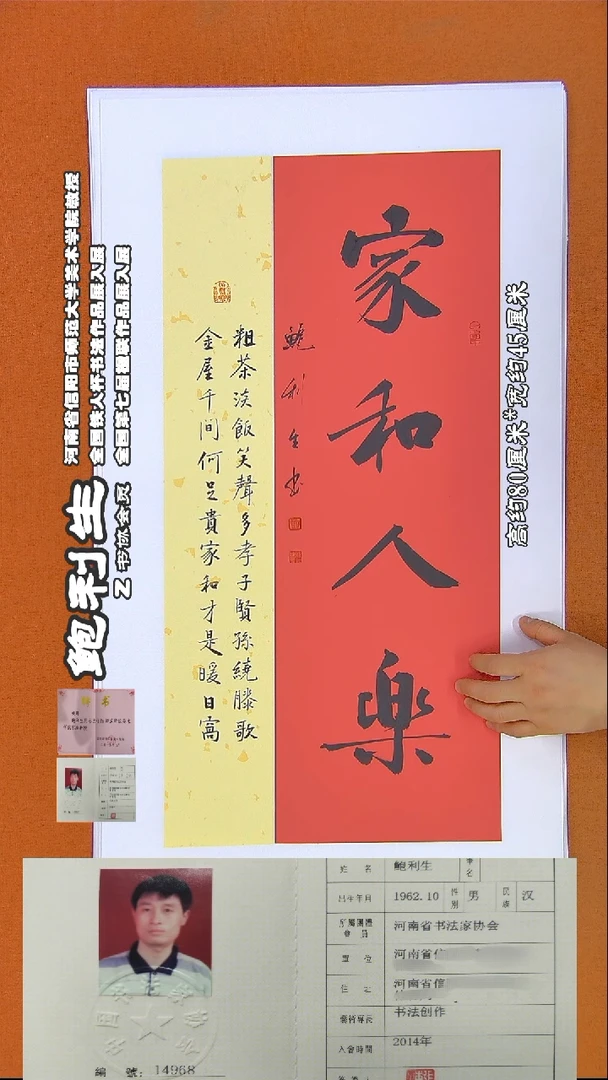 家和人樂
鮑利生书
粗茶淡飯笑聲多孝子賢孫繞膝歌
金屋千間何足貴家和才是暖日窩
高约80厘米*宽约45厘米
河南省信阳市
大学美术学院教授
全国
书法作品展入展
全国第七届楹联作品展入展
鲍利生
中书协会员
姓 名 鲍利生
出生年月 1962.10 性别 男 民族 汉
河南省书法家协会
單 位 河南省信
住 址 河南省信
书法创作
入會時間 2014年
編 號: 14968